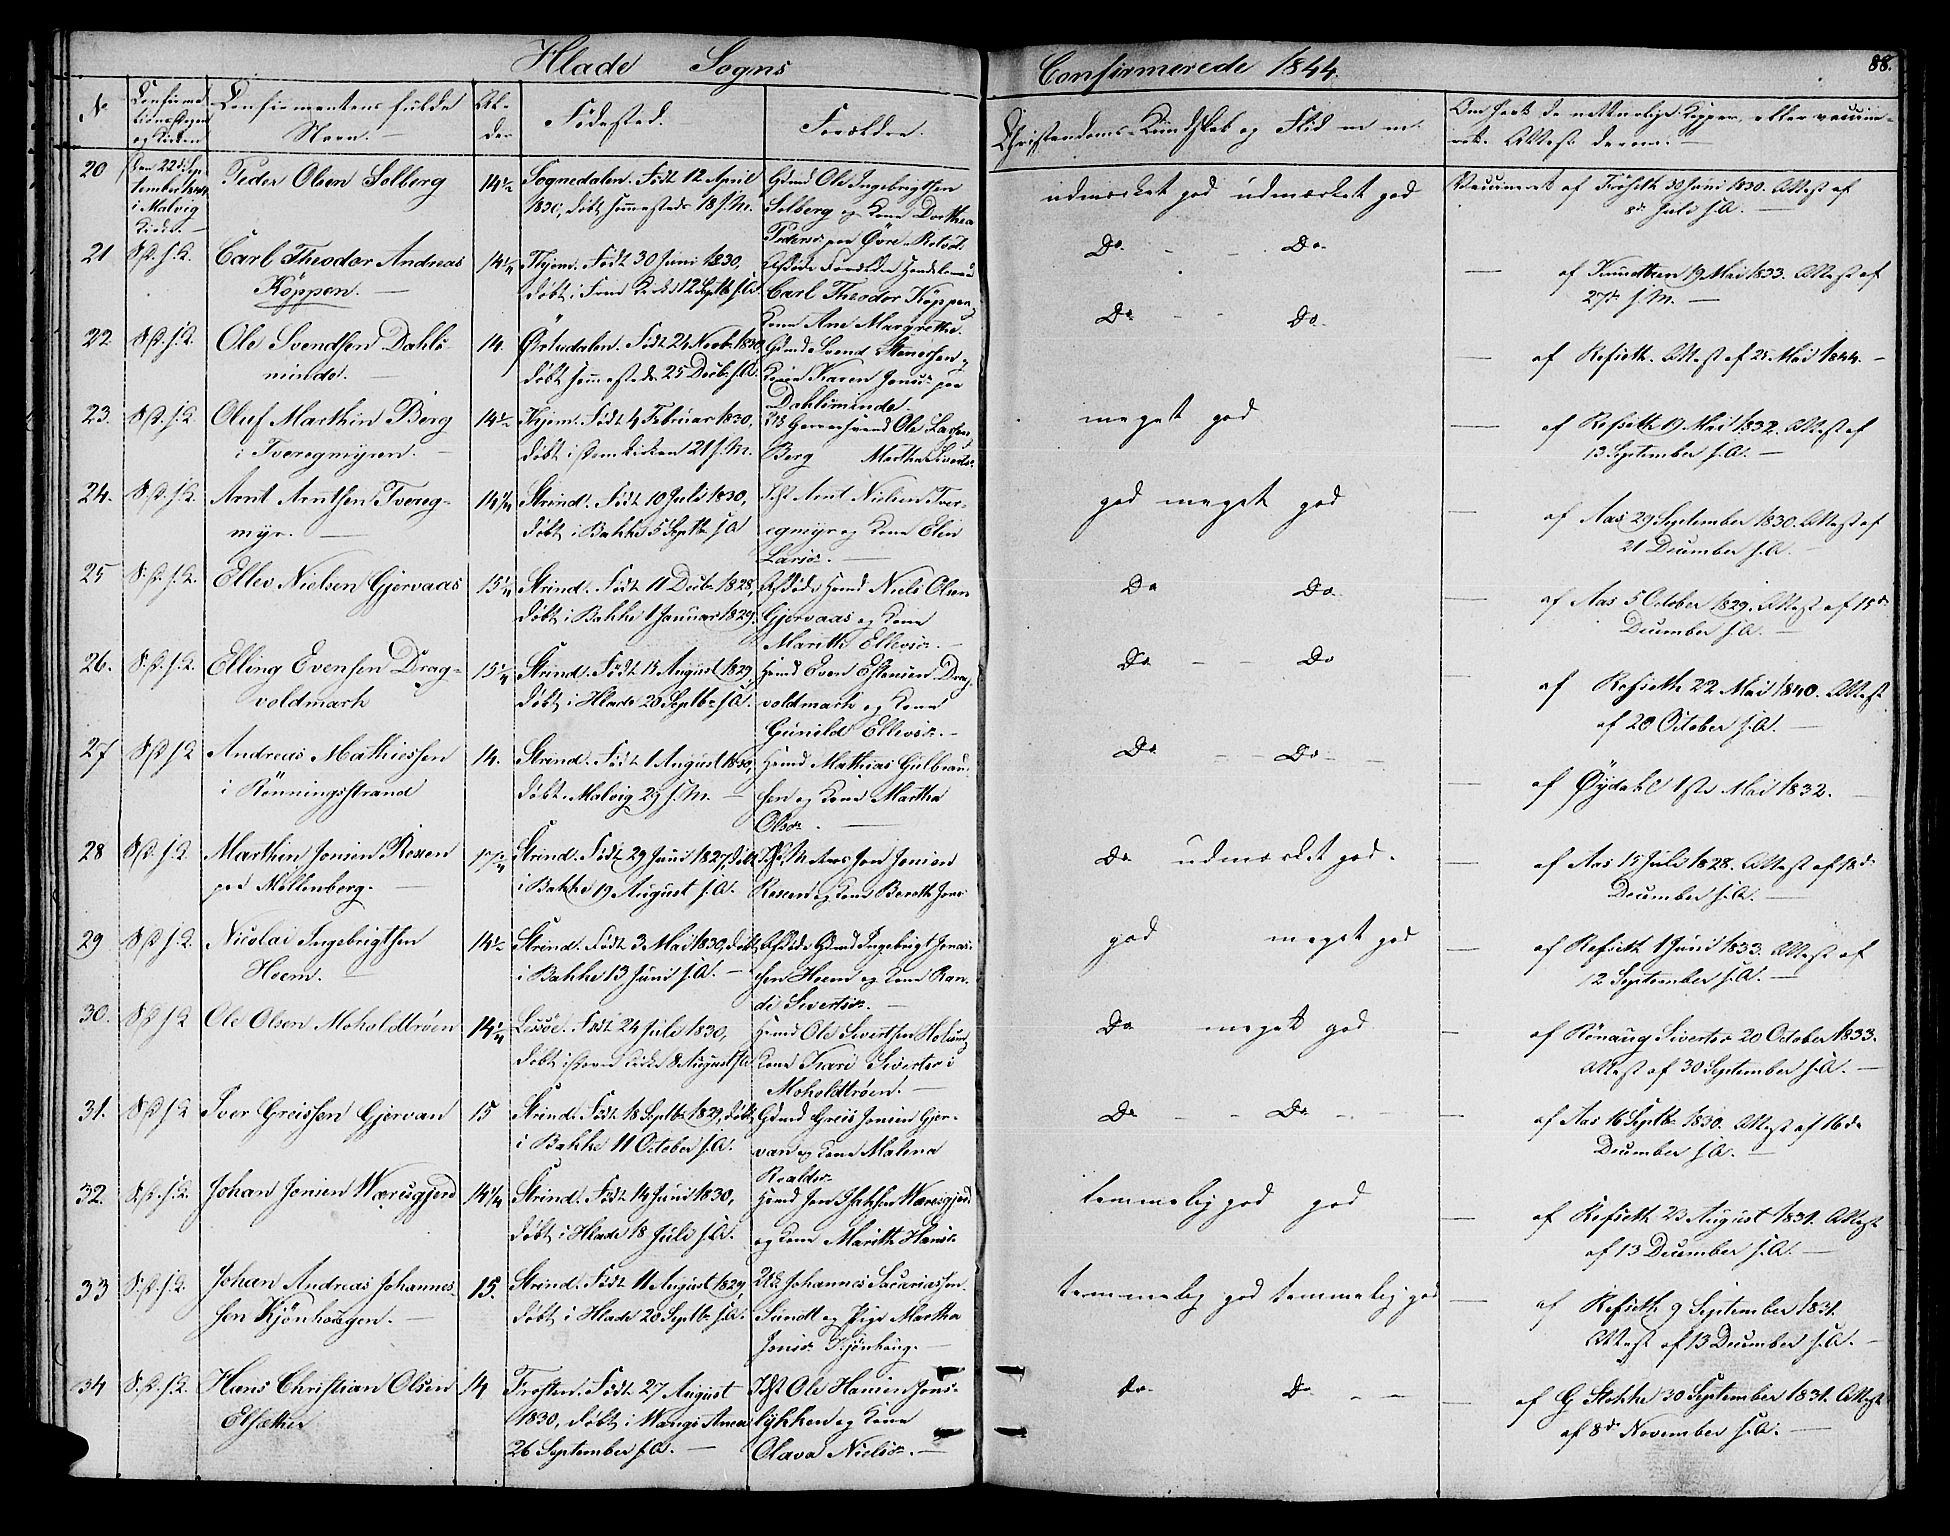 Hlade Sogns
Confirmerede 1844.
88.
No
Confirma-
tionsdagen
og Kirken
Confirmantens fulde
Navn. —
Al-
der
Fødested.
Forældre.
Christendoms-Kundskab og Flid m. m.
Om havt de naturlige Kopper, eller vaccine-
ret. Attest derom. —
20
Den 22de Sep
tember 1844
i Malvig
Kirke. —
Peder Olsen Solberg
14½
Sognedalen. Født 12 April
1830, døbt sammesteds 18 s. M.
Gmd Ole Ingebrigtsen
Solberg og Kone Dorthea
Pedersd. paa Øvre Rolset.
udmærket god udmærket god
Vaccineret af Frøseth 30 Juni 1830. Attest af
8de Juli s. A. —
21
S. St. s. K.
Carl Theodor Andreas
Köppen. —
14¼
Thjem. Født 30 Juni 1830,
døbt i Frue Kirke 12 Septb. s. A.
Afdøde Forældre Handelsmand
Carl Theodor Köppen,
Kone Ane Margrethe.
Do. — — Do.
— af Knudtzen 19 Mai 1833. Attest af
27de s. M. —
22
S. St. s. K.
Ole Svendsen Dahls-
minde. —
14.
Østerdalen. Født 24 Novb. 1830,
døbt sammesteds 25 Decb. s. A.
Gmd Svend Stenersen og
Kone Karen Jonsd. paa
Dahlsminde.
Do. — — Do.
— af Refseth. Attest af 25 Mai 1844. —
23.
S. St. s. K.
Oluf Marthin Berg
i Tveregmyren. —
14½
Thjem. Født 4 Februar 1830,
døbt i Domkirken 21 s. M.
Ole Larsen
Berg Martha Sivertsd.
meget god
— af Refseth 19 Mai 1832. Attest af
13 September s. A. —
24.
S. St. s. K.
Arnt Arntsen Tvereg-
myr. —
14¼
Strind. Født 10 Juli 1830,
døbt i Bakke 5 Septb. s. A
Arnt Nielsen Tver-
egmyr og Kone Elen
Larsd. —
god meget god
— af Aas 29 September 1830. Attest af
21 December s. A. —
25
S. St. s. K.
Ellev Nielsen Gjervaas
15¾
Strind. Født 11 Decb. 1828,
døbt i Bakke 1 Januar 1829.
Afdøde Huusmd Niels Olsen
Gjervaas og Kone
Marith Ellevsd. —
Do Do
— af Aas 5 October 1829. Attest af 15de
December s. A. —
26.
S. St. s. K.
Elling Evensen Drag-
voldmark
15¼
Strind. Født 13 August 1829,
døbt i Hlade 20 Septbr s. A.
Huusmd Even Estensen Drag-
voldmark og Kone
Gunild Ellevsd. —
Do — — Do
— af Refseth 22 Mai 1840. Attest
af 20 October s. A. —
27
S. St. s. K
Andreas Mathiessen
i Rönningsstrand
14.
Strind. Født 1 August 1830,
døbt i Malvig 29 s. M. —
Huusmd Mathias Gulbrand-
sen og Kone Martha
Olsd. —
Do — — Do — —
— af Øydahl 1ste Mai 1832. —
28
S. St. s. K.
Marthin Jonsen Rosen
paa Mellenberg. —
17¼
Strind. Født 29 Juni 1827, døbt
i Bakke 19 August s. A. —
Jon Jonsen
Rosen og Kone Bereth Jons
Do udmærket god.
— af Aas 15 Juli 1828. Attest af 18de
December s. A. —
29
S. St. s. K.
Nicolai Ingebrigtsen
Heem. —
14½
Strind. Født 3 Mai 1830, døbt
i Bakke 13 Juni s. A. —
Afdøde Gmd Ingebrigt Jonas-
sen Heem og Kone Ran-
di Sivertsd. —
god meget god
— af Refseth 1 Juni 1833. Attest af
12 September s. A. —
30.
S. St. s. K
Ole Olsen Moholdtrøen
14¼
Lesøe. Født 24 Juli 1830,
døbt i Kirke 8 August s. A
Huusmd Ole Sivertsen
Kone Kari Sivertsd. i
Moholdtrøen. —
Do meget god
— af Rönaug Sivertsd. 20 October 1833.
Attest af 30 September s. A. —
31.
S. St. s. K
Iver Greissen Gjervan
15
Strind. Født 18 Septb. 1829, døbt
i Bakke 11 October s. A.
Gmd Greis Jonsen Gjer-
van og Kone Malena
Roaldsd.
Do — — Do —
— af Aas 16 Septb. 1830. Attest af 16de
December s. A. —
32.
S. St. s. K.
Johan Jonsen Wæresgjerd
14¼
Strind. Født 14 Juni 1830,
døbt i Hlade 18 Juli s. A.
Huusmd Jon Wæresgjerd
og Kone Marith Hansd.
temmelig god god
— af Refseth 23 August 1831. Attest
af 13 December s. A. —
33
S. St. s. K.
Johan Andreas Johannes
sen Kjönhougen. —
15.
Strind. Født 11 August 1829,
døbt i Hlade 20 Septb. s. A.
Uk. Johannes Sacariassen
Sundt og Pige Martha
Jonsd. Kjönhaug. —
temmelig god temmelig god
— af Refseth 9 September 1831.
Attest af 13 December s. A. —
34
S. St. s. K.
Hans Christian Olsen
Elsæther
14
Frosten. Født 27 August
1830, døbt i
26 September s. A. —
Idst Ole Hansen Jons-
lykken og Kone
Olava Nielsd. —
do. Do — —
— af G Stokke 30 September 1831. Attest
af 8de November s. A. —